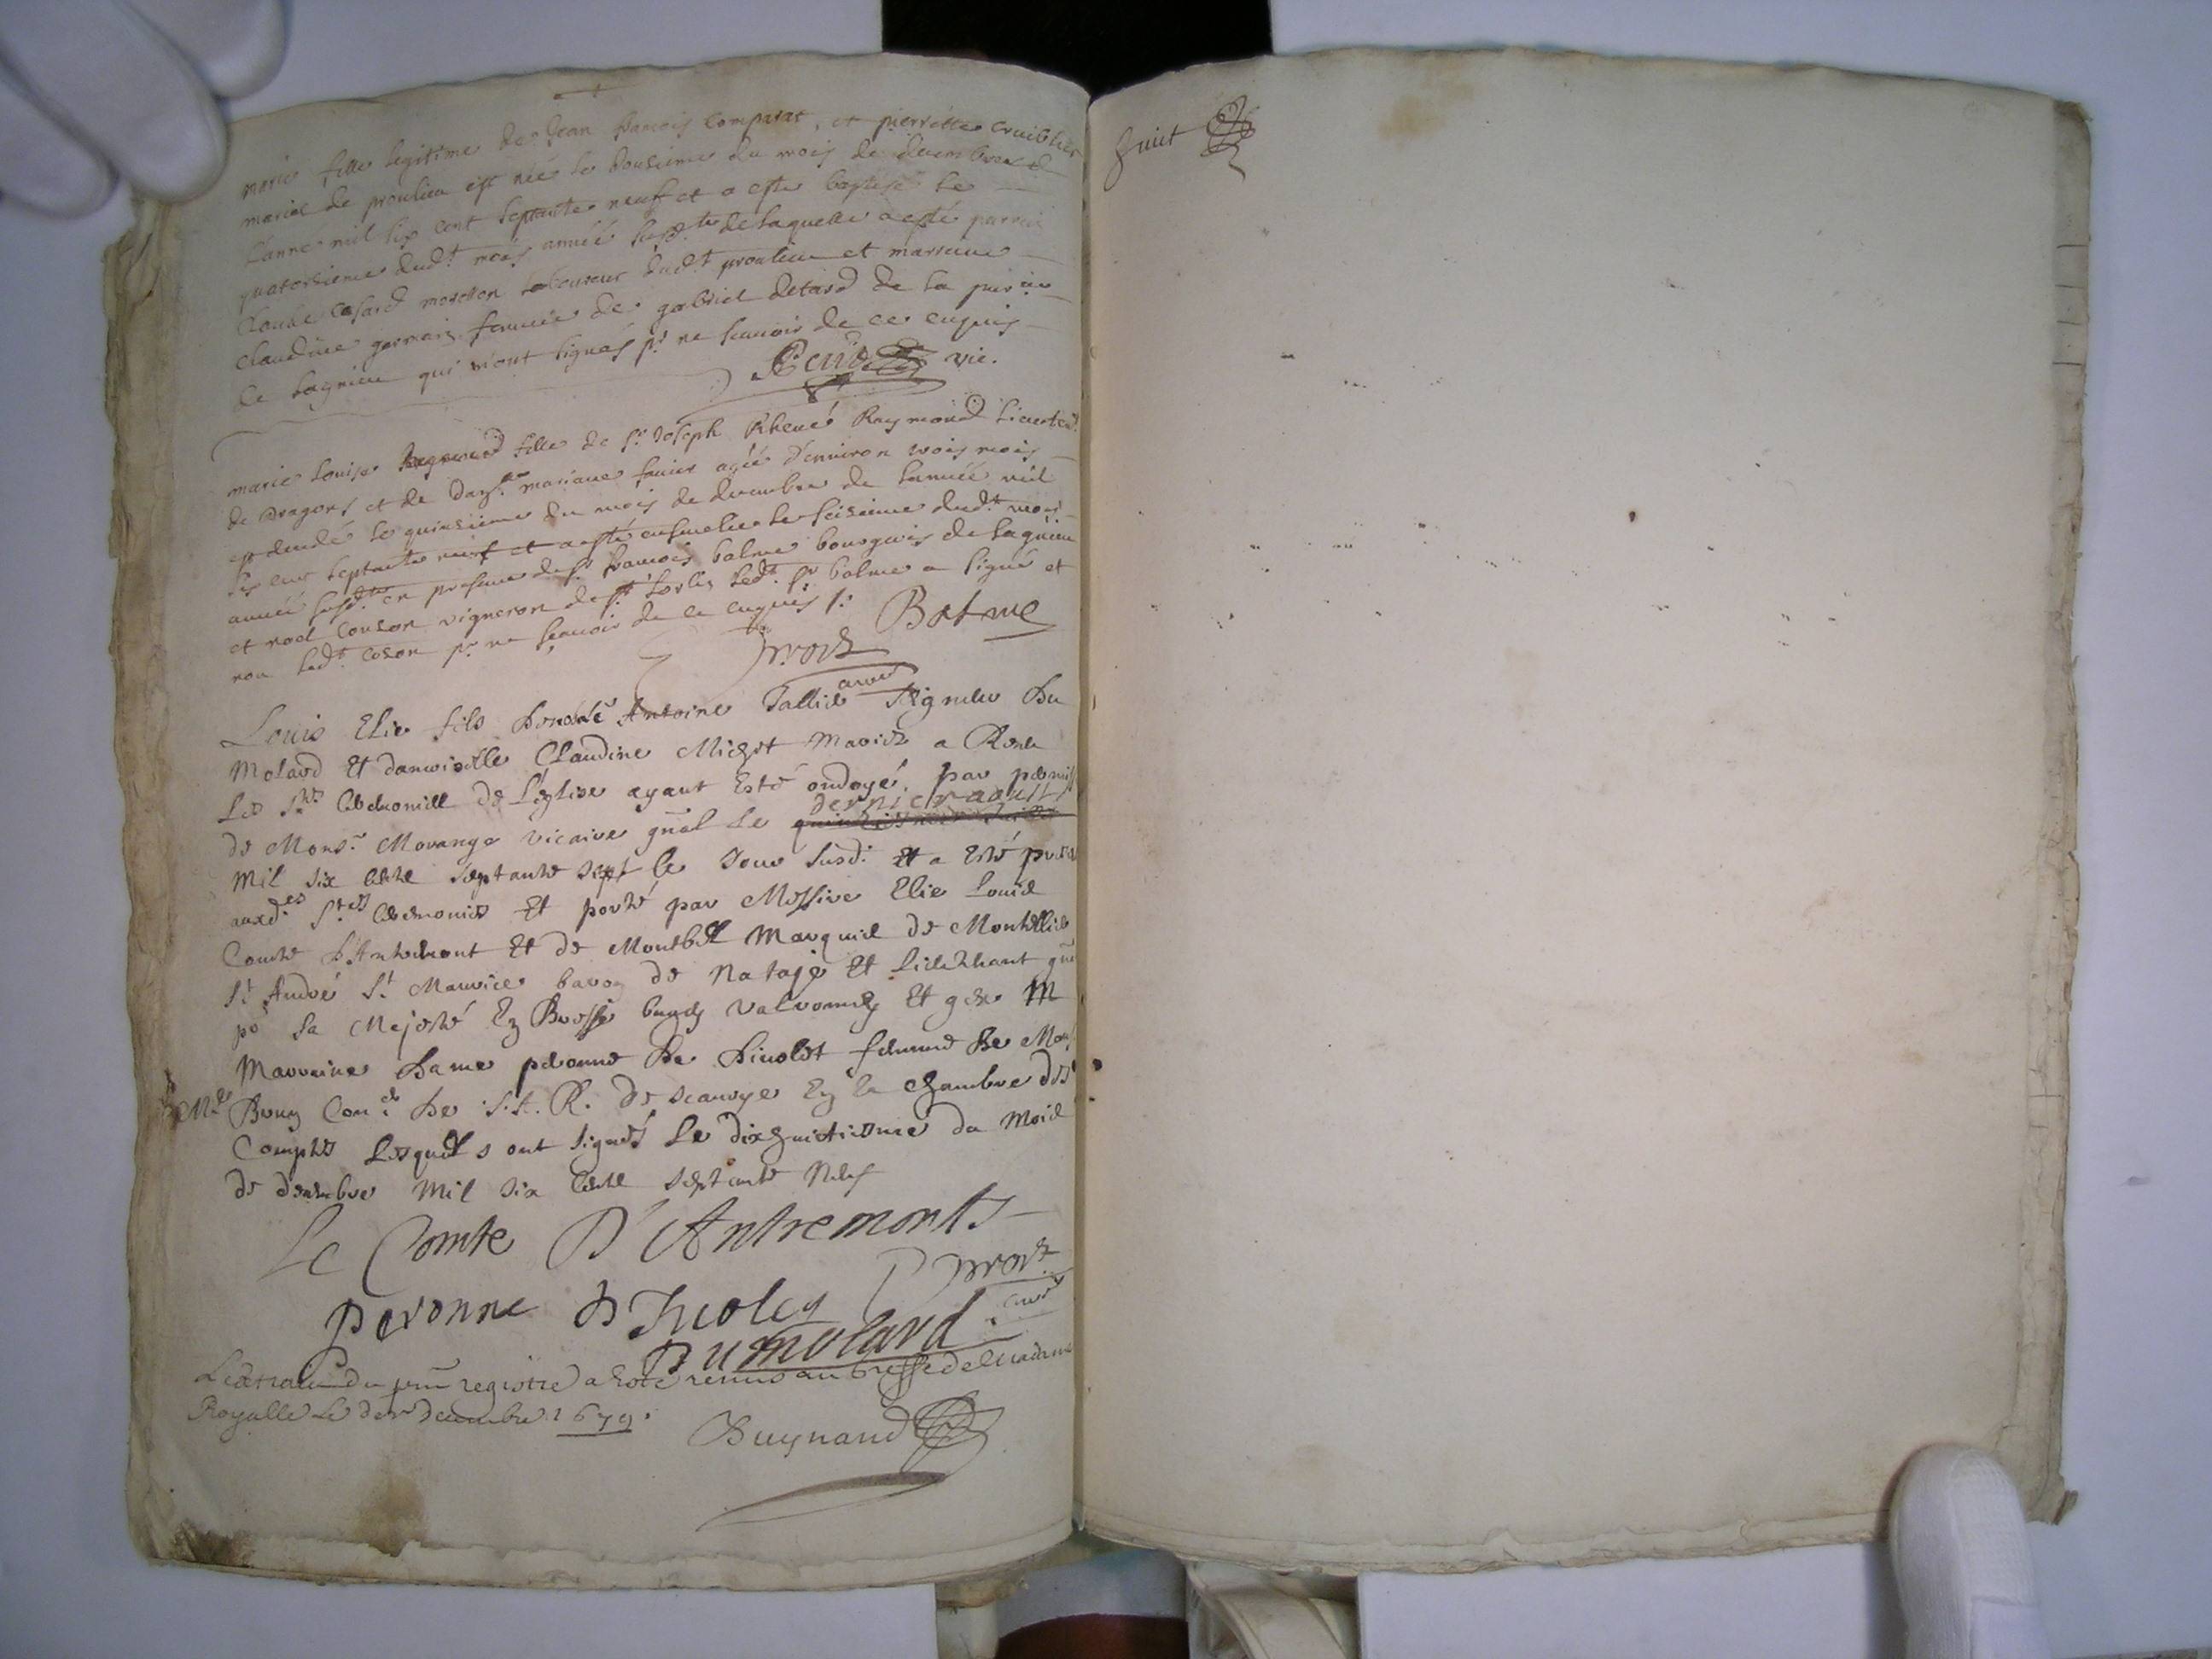 marie fille legitime de Jean francois Comparat, et pierrette cruiblier
mariés de proulieu est née le dousieme du mois de decembre de
l'anné mil six cent septante neuf et a esté baptisé le
quatorsieme dud.t mois année susd.te de laquelle a esté parrain
Claude Casard laboureur dud.t proulieu et marreine
Claudine germain femme de gabriel detard de la
de lagnieu qui n'ont signés p.r ne scavoir de ce enquis
vic.
marie Louise Raymond fille de s.r Joseph Rhené Raymond lieuten.t
de Dragons et de mariane favier agée d'environ trois mois
est decedé le quinsieme du mois de decembre de l'année mil
six cent septante neuf et a esté ensevelie le seisieme dud.t mois
année susd.te en presence de s.r francois balme bourgeois de lagnieu
et noel Couson vigneron de s.t Sorlin led.t s.r balme a signé et
non led.t Coson p.r ne scavoir de ce enquis
Balme
curé
Louis Elie fils de noble Antoine Tallie seigneur Du
Molard Et damoiselle Claudine Michet Mariés a Receu
Les S.tes Ceremonies de L'eglise ayant Esté ondoyé par permiss
de Mons.r Morange vicaire gnâl Le dernier aoust
Mil six Cents septante sept le Jour susd.t Et a Esté presenté
auxd.es S.tes Ceremonies Et porté par Messire Elie Louis
Comte D'Antremont Et de Montbel Marquis de Montellier
S.t André S.t Maurice baron de Nataje Et Lieutenant gnâl
po.r Sa Majesté En Bresse bugey valromey Et gex M
Marraine Dame peronne De Divolet femme De Mon.s
Bruny Con.er De S. A. R. de scavoye En la chambre des
Comptes Lesquels ont signés Le dixhuictiesme du Mois
de decembre Mil six Cents septante Neuf
Le Comte D'Antremonts
curé
Peronne
Dumolard
L'extraict du pnt registre a Esté remis au Greffe de Madame
Royalle Le der decembre 1679.
Buynand
huict